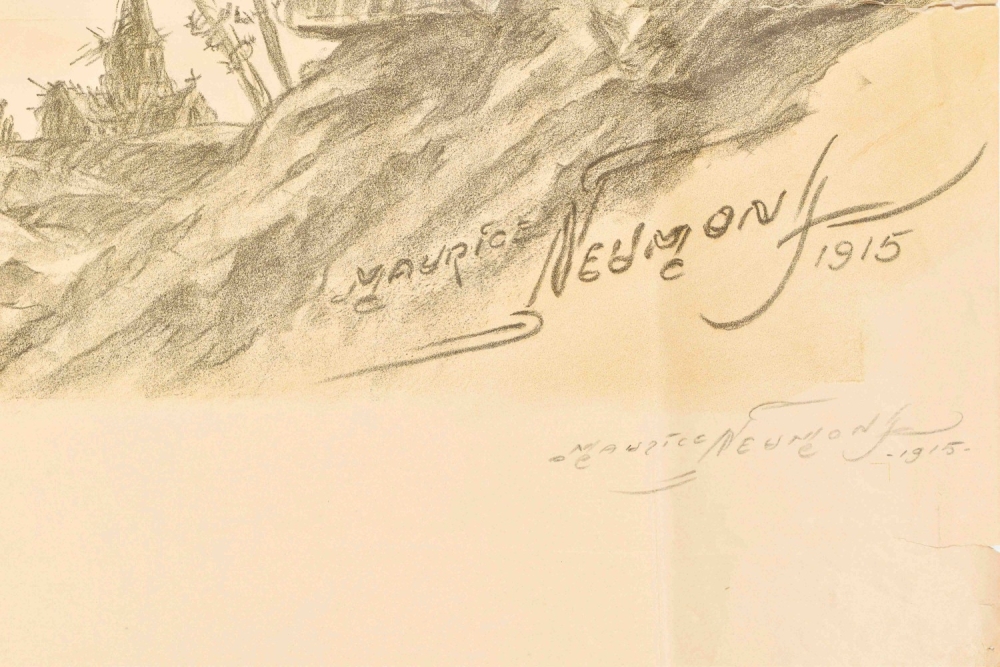 MAURICE NEUMONT 1915
MAURICE NEUMONT -1915-